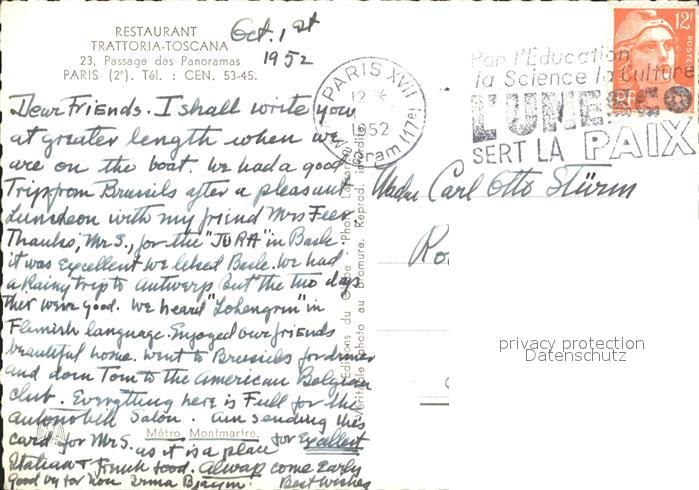 RESTAURANT
TRATTORIA-TOSCANA
23, Passage des Panoramas
PARIS (2e). Tél. : CEN. 53-45.
Oct. 1st
1952
12F
POSTES
PARIS XVII
12 *
1952
Wagram (17e)
Par l'Education
la Science la Culture
L'UNESCO
SERT LA PAIX
Dear Friends. I shall write you
at greater length when we
are on the boat. We had a good
Trip from Brussils after a pleasant
Luncheon with my friend Mrs Feer.
Thanks, Mr S., for the "JURA" in Basle
it was Excellent we liked Basle. We had
a Rainy trip to Antwerp But the two days
ther were good. We heard "Lohengrin" in
Flemish language. Enjoyed our friends
beautiful home. Went to Brussils for dinner
and dom Tom to the American Belgian
club. Everything here is Full for the
automobile Salon. am sending this
card for Mr S. as it is a place for Excellent
Italian + French food. Always come Early
Good by for now Best wishes
Métro. Montmartre.
Carl Otto Stürm
Editions du Globe - Photo
Véritable photo au bromure. Reprod. interdite.
privacy protection
Datenschutz